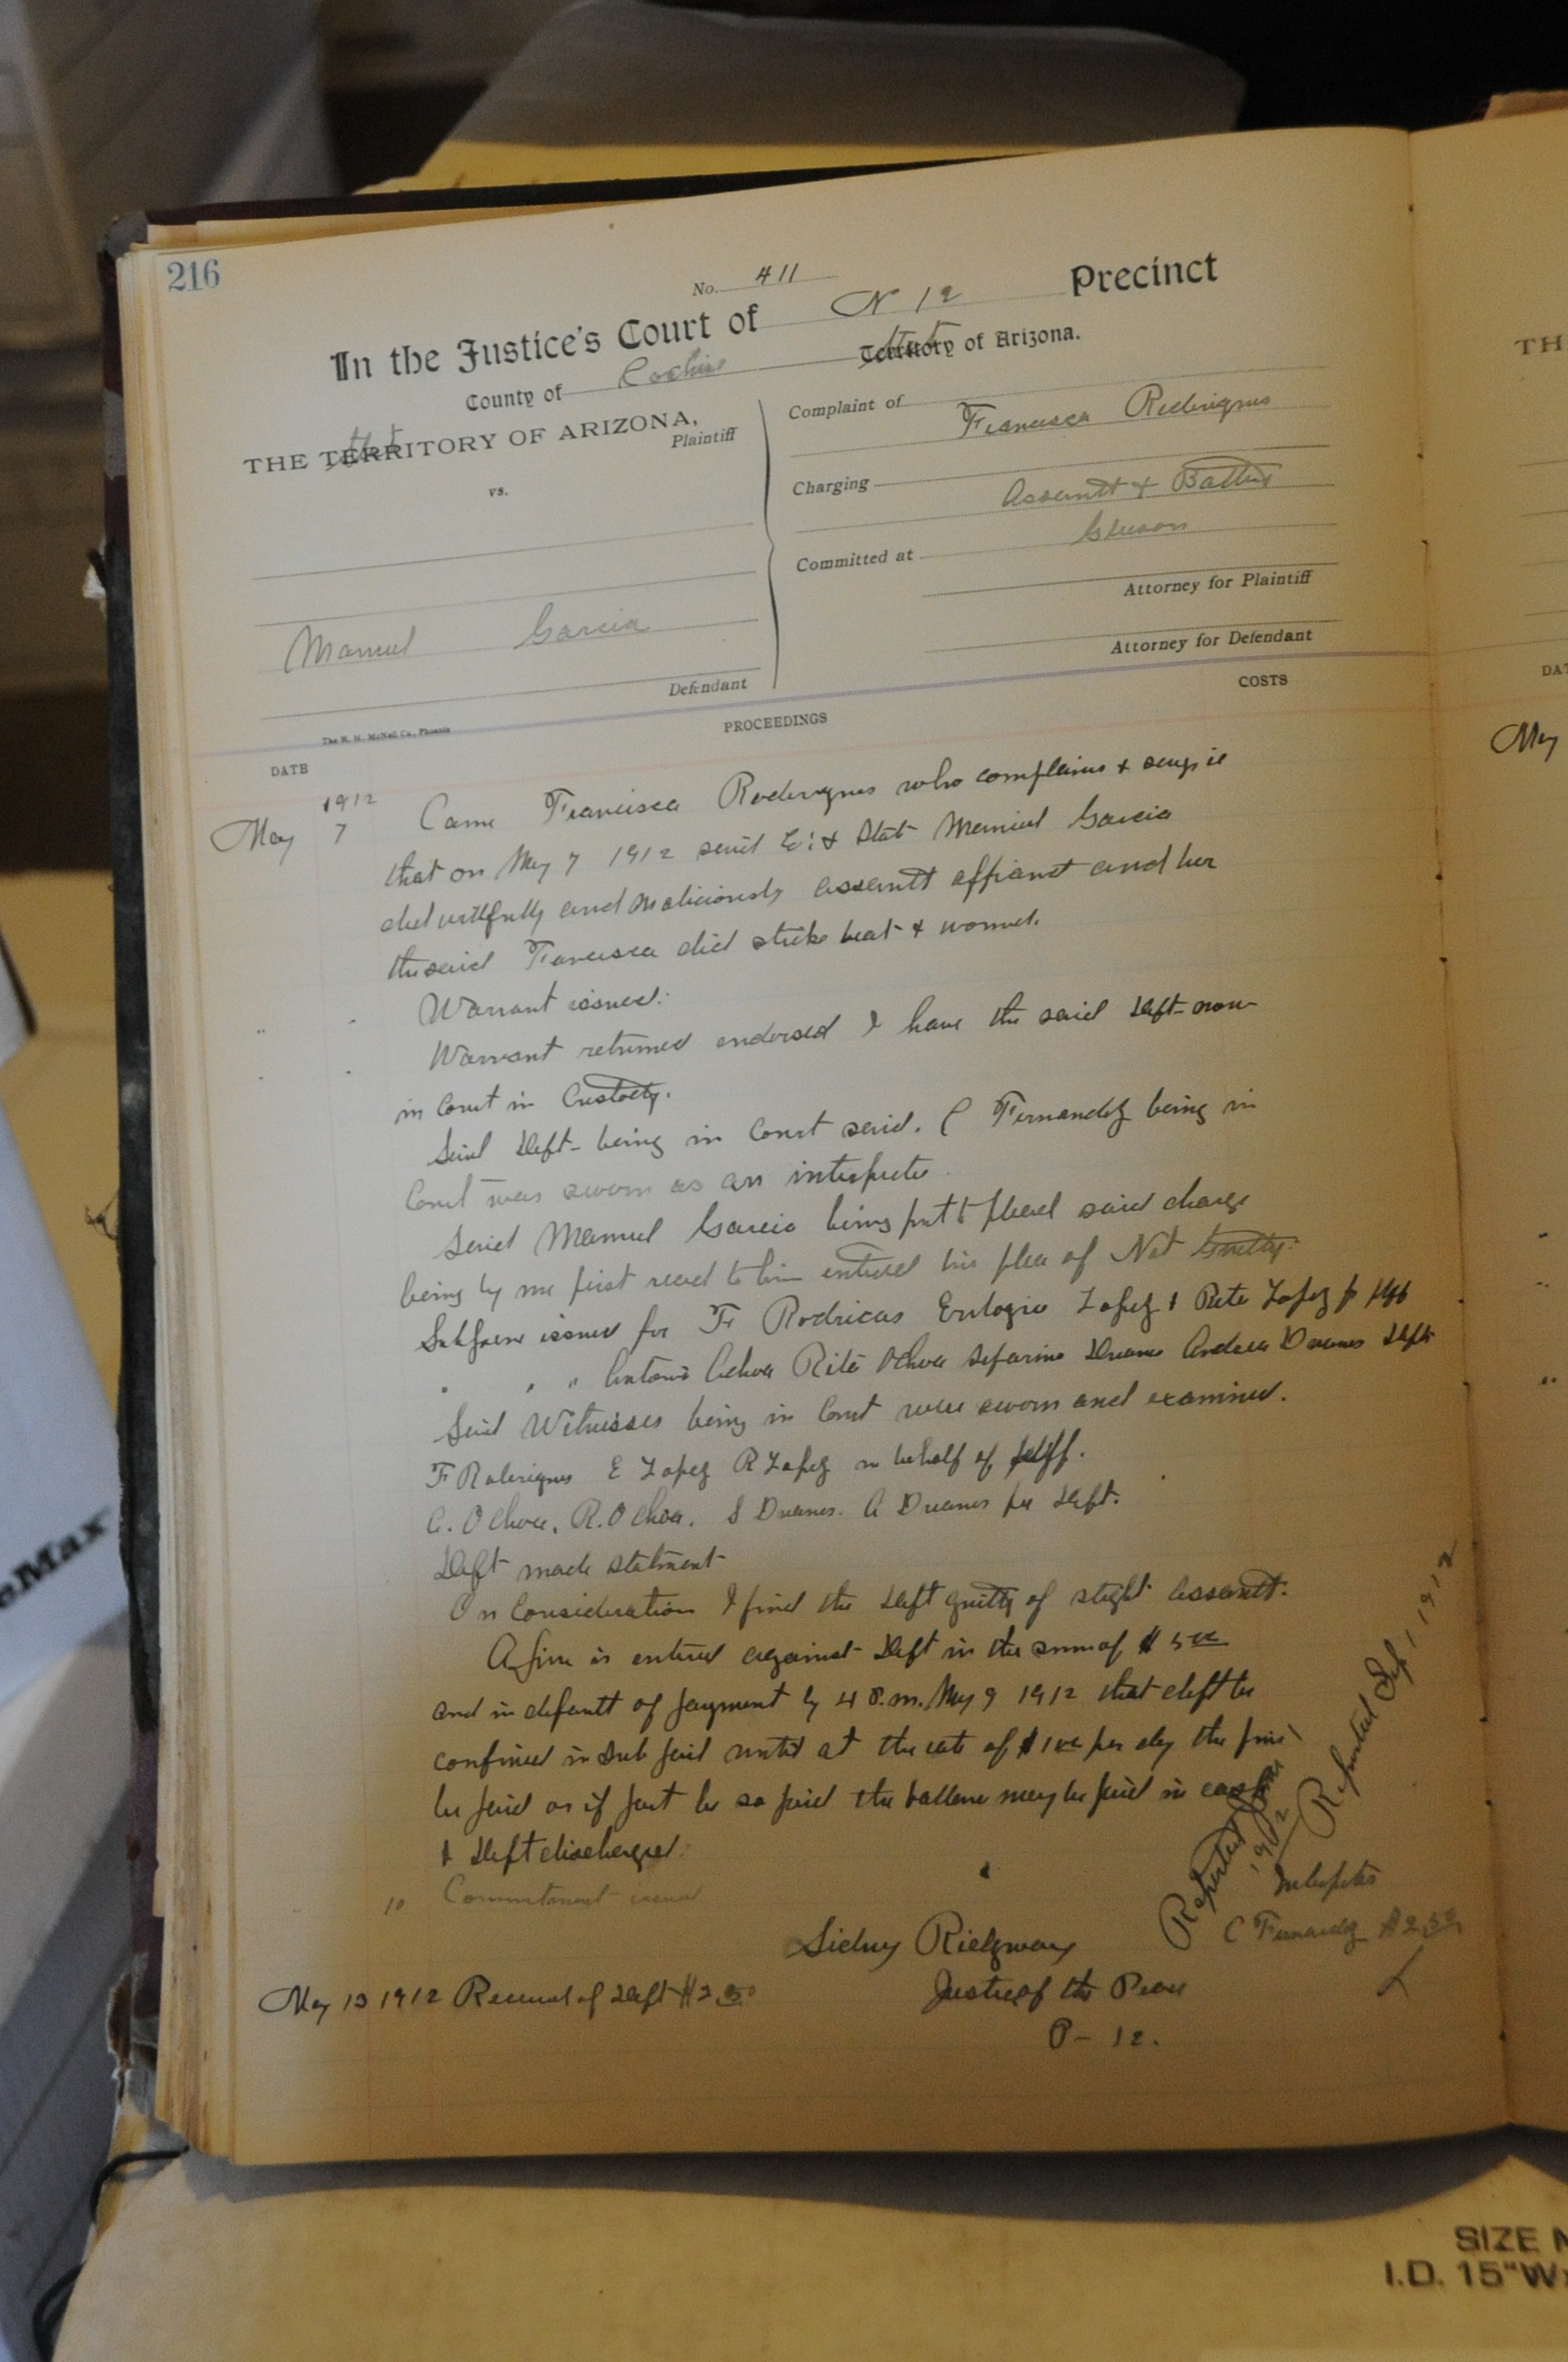 216
No. 411
In the Justice's Court of N 12 Precinct
County of Cochise State Territory of Arizona.
THE State TERRITORY OF ARIZONA,
Plaintiff
vs.
Manuel Garcia
Defendant
The H. H. McNeil Co., Phoenix
Complaint of Francisca Roderigues
Charging Assault & Battery
Gleeson
Committed at
Attorney for Plaintiff
Attorney for Defendant
DATE
PROCEEDINGS
COSTS
1912
May 7 Came Francisca Roderigues who complains & says
that on May 7 1912 said Co & State Manuel Garcia
did willfully and maliciously assault affiant and her
the said Francisca did strike beat & wound.
Warrant issued.
Warrant returned endorsed I have the said Deft now
in Court in Custody.
Said Deft being in Court said. C Fernandez being in
Court was sworn as an interpreter.
Said Manuel Garcia being put to plead said charge
being by me first read to him entered his plea of Not Guilty.
Subpoena issued for F Rodricas Eulogio Lopez & Rita Lopez for Plff
" " " Antonio Ochoa Rita Ochoa Sefarino Duanes Andrea Duanes Deft
Said Witnesses being in Court were sworn and examined.
F Roderigues E Lopez R Lopez on behalf of plff.
A. Ochoa, R. Ochoa. S Duanes. A Duanes for Deft.
Deft made statment
On Consideration I find the Deft guilty of slight assault.
A fine is entered against Deft in the sum of $5 00
and in default of payment by 4 P.m. May 9 1912 that deft be
confined in Sub Jail until at the rate of $1 00 per day the fine
be paid or if part be so paid the ballance may be paid in cash
& Deft discharged.
10 Commitment issued
Sidney Ridgway
Justice of the Peace
P - 12.
May 13 1912 Received of Deft $2 50
Reported June 1912
Reported Sep 1 1912
Interpreter
C Fernandez $2 50
TH
DAT
May
eMax
SIZE N
I.D. 15"W